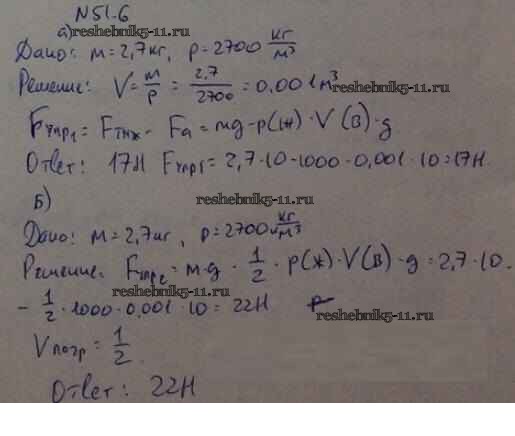 N 51.6
а) reshebnik5-11.ru
Дано: m = 2,7 кг, ρ = 2700 кг/м³
Решение: V = m/ρ = 2,7/2700 = 0,001 м³
reshebnik5-11.ru
Fупр1 = Fтяж - Fa = mg - ρ(ж) · V(в) · g
Ответ: 17Н Fупр1 = 2,7 · 10 - 1000 · 0,001 · 10 = 17Н.
reshebnik5-11.ru
б)
Дано: m = 2,7 кг, ρ = 2700 кг/м³
reshebnik5-11.ru
Решение. Fупр2 = m·g · 1/2 · ρ(ж) · V(в) · g = 2,7 · 10 ·
reshebnik5-11.ru
- 1/2 · 1000 · 0,001 · 10 = 22Н
reshebnik5-11.ru
Vпогр = 1/2.
Ответ: 22Н